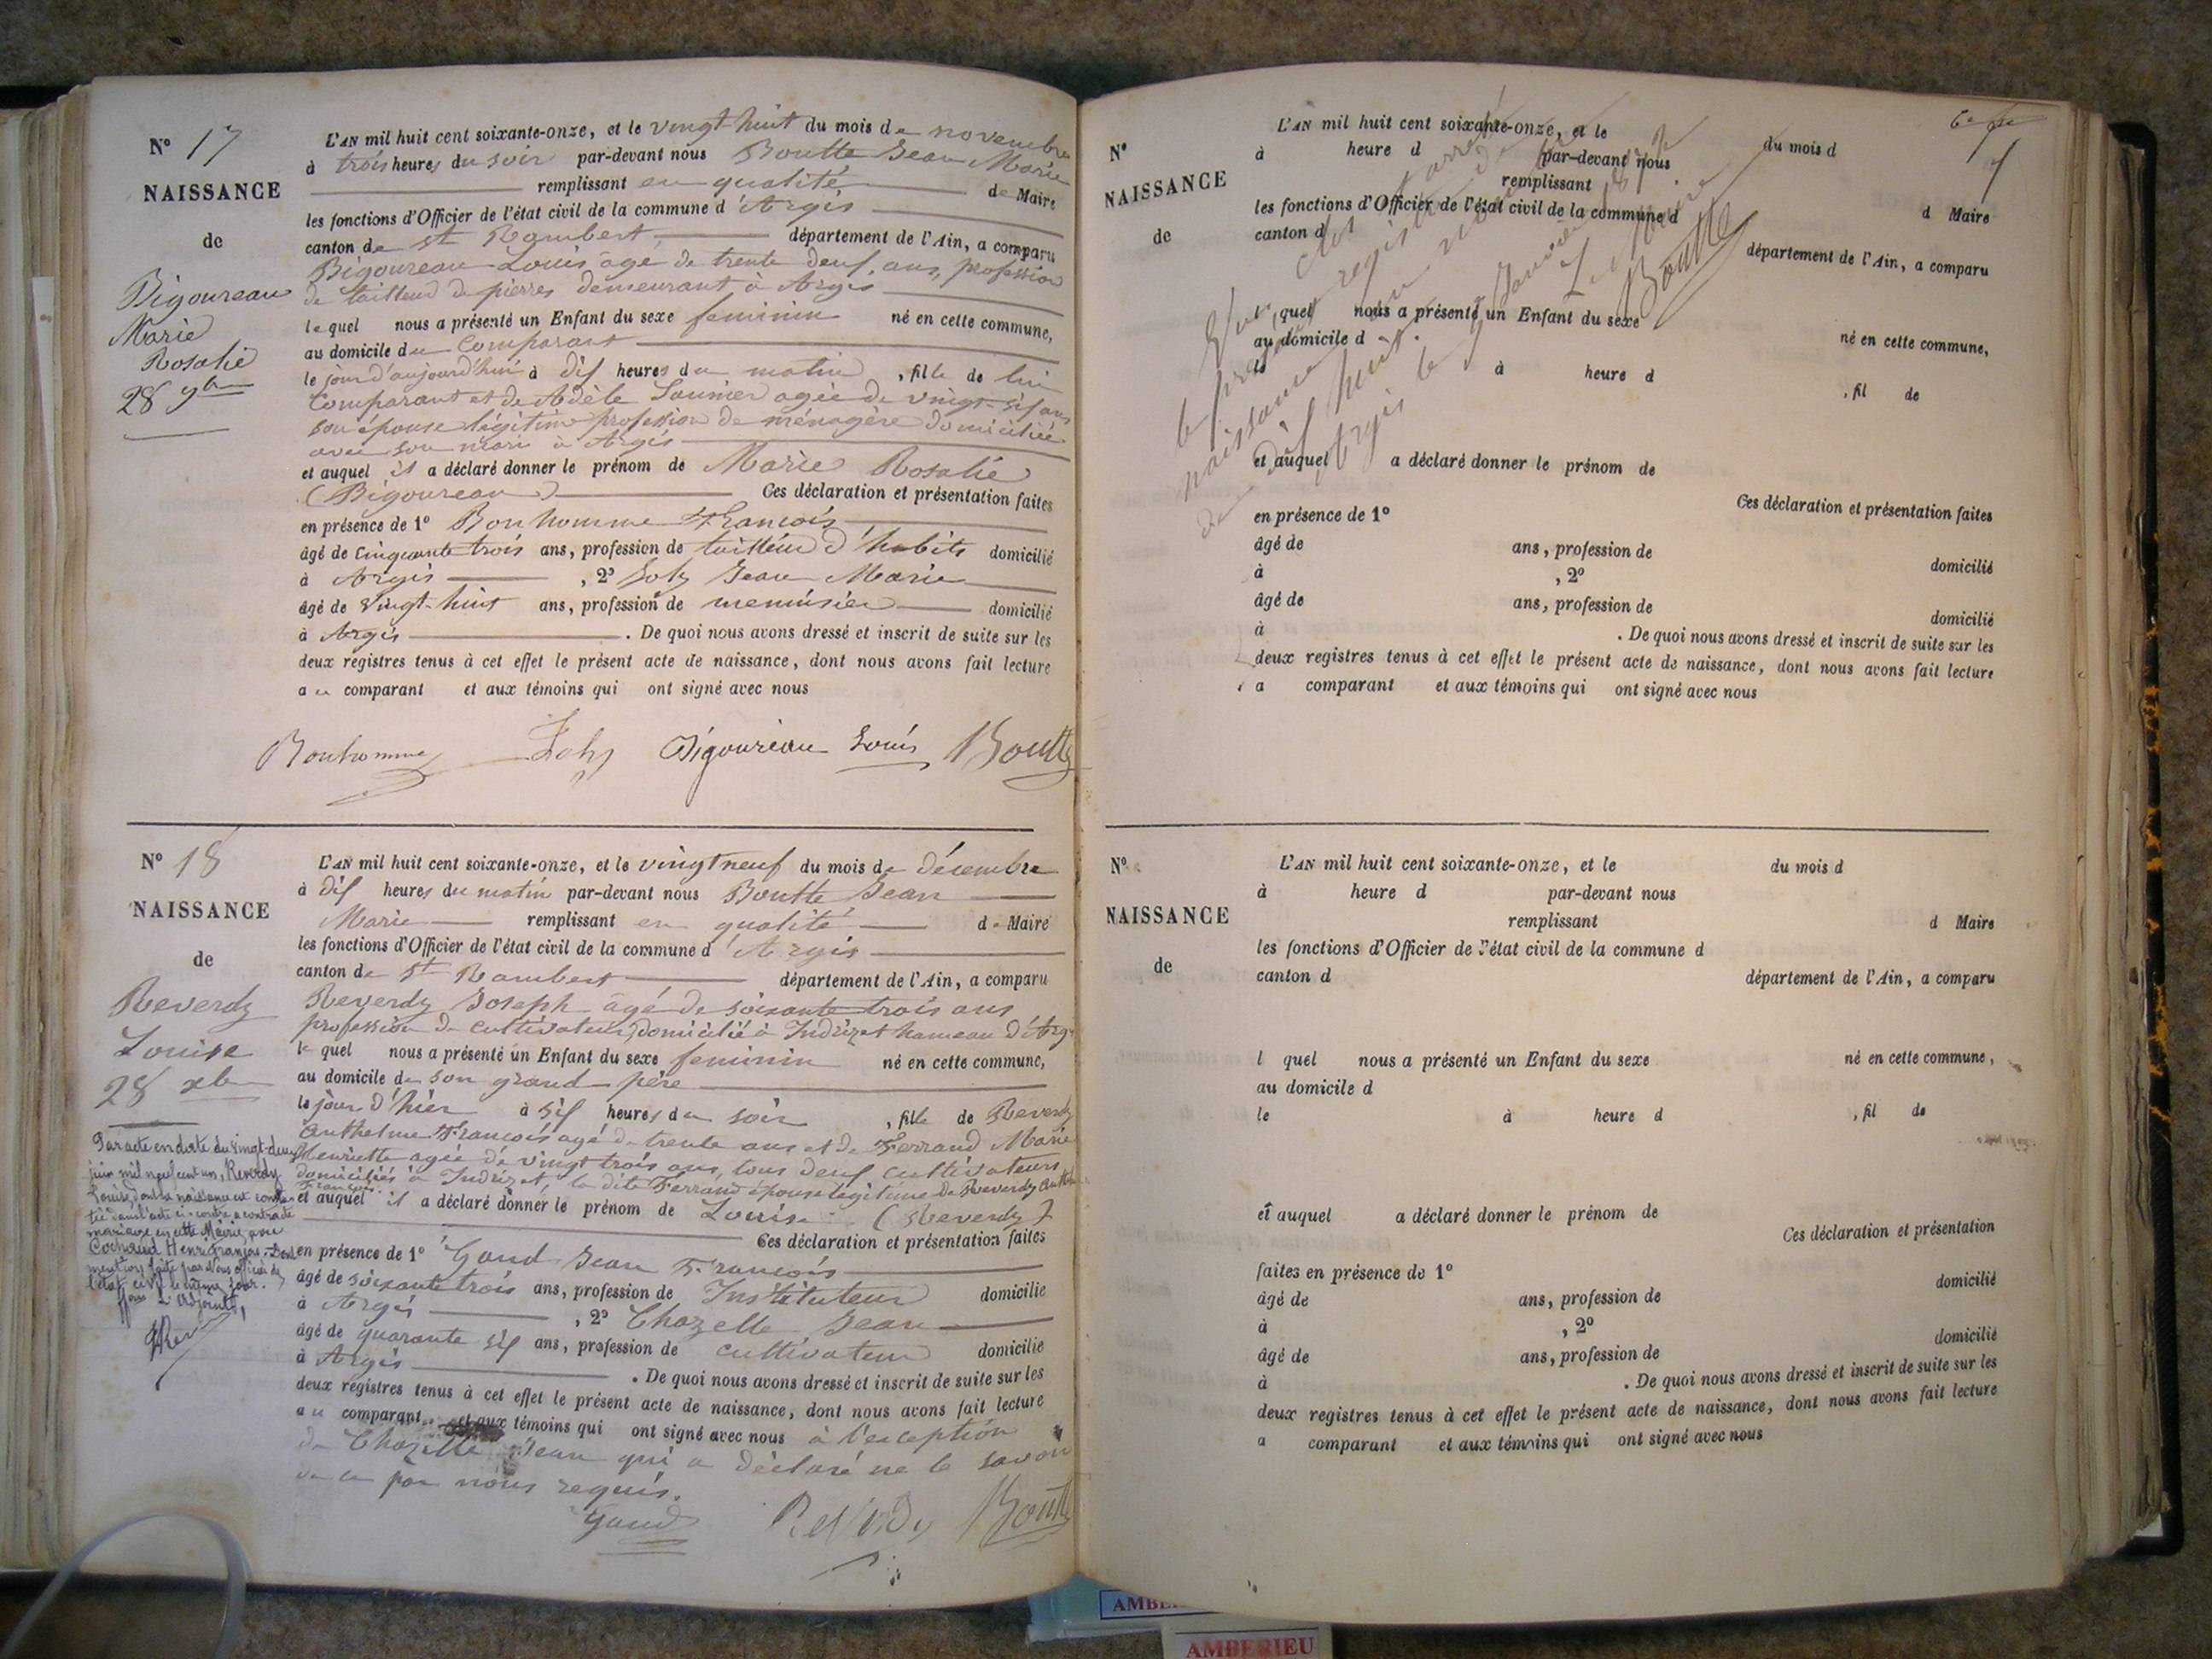 N° 17
NAISSANCE
de
Bigoureau
Marie
Rosalie
28 9bre
L'AN mil huit cent soixante-onze, et le vingt-huit du mois de novembre
à trois heures du soir par-devant nous Boutte Jean Marie
remplissant en qualité de Maire
les fonctions d'Officier de l'état civil de la commune d'Argis
canton de St Rambert département de l'Ain, a comparu
Bigoureau Louis âgé de trente deux ans, profession
de tailleur de pierres demeurant à Argis
lequel nous a présenté un Enfant du sexe feminin né en cette commune,
au domicile du Comparant
le jour d'aujourd'hui à dix heures du matin, fille de lui
Comparant et de Adèle Saunier agée de vingt-six ans
son épouse légitime profession de ménagère domiciliée
avec son mari à Argis
et auquel il a déclaré donner le prénom de Marie Rosalie
(Bigoureau) Ces déclaration et présentation faites
en présence de 1° Bonhomme François
âgé de cinquante trois ans, profession de tailleur d'habits domicilié
à Argis, 2° Joly Jean Marie
âgé de vingt-huit ans, profession de menuisier domicilié
à Argis. De quoi nous avons dressé et inscrit de suite sur les
deux registres tenus à cet effet le présent acte de naissance, dont nous avons fait lecture
au comparant et aux témoins qui ont signé avec nous
Bonhomme Joly Bigoureau Louis Boutte
N° 18
NAISSANCE
de
Reverdy
Louise
28 xbre
Par acte en date du vingt-deux
juin mil neuf cent un, Reverdy
Louise, dont la naissance est consta-
tée dans l'acte ci-contre a contracté
mariage en cette Mairie, avec
Cochaud Henri François. Dont
mention faite par Nous officier de
l'état civil le même jour.
L'Adjoint,
L'AN mil huit cent soixante-onze, et le vingt neuf du mois de décembre
à dix heures du matin par-devant nous Boutte Jean
Marie remplissant en qualité de Maire
les fonctions d'Officier de l'état civil de la commune d'Argis
canton de St Rambert département de l'Ain, a comparu
Reverdy Joseph âgé de soixante trois ans
profession de cultivateur, domicilié à Indrizet hameau d'Argis
lequel nous a présenté un Enfant du sexe feminin né en cette commune,
au domicile de son grand père
le jour d'hier à six heures du soir, fille de Reverdy
Anthelme François agé de trente ans et de Ferrand Marie
Henriette agée de vingt trois ans, tous deux cultivateurs
domiciliés à Indrizet, la dite Ferrand épouse légitime de Reverdy Anthelme
François.
et auquel il a déclaré donner le prénom de Louise (Reverdy)
Ces déclaration et présentation faites
en présence de 1° Gaud Jean François
âgé de soixante trois ans, profession de Instituteur domicilié
à Argis, 2° Chazelle Jean
âgé de quarante six ans, profession de cultivateur domicilié
à Argis. De quoi nous avons dressé et inscrit de suite sur les
deux registres tenus à cet effet le présent acte de naissance, dont nous avons fait lecture
au comparant et aux témoins qui ont signé avec nous à l'exception
de Chazelle Jean qui a déclaré ne le savoir
de ce par nous requis.
Gaud Reverdy Boutte
N°
NAISSANCE
de
L'AN mil huit cent soixante-onze, et le du mois d
à heure d par-devant nous
remplissant d Maire
les fonctions d'Officier de l'état civil de la commune d
canton d département de l'Ain, a comparu
l quel nous a présenté un Enfant du sexe né en cette commune,
au domicile d
le à heure d, fil de
et auquel a déclaré donner le prénom de
Ces déclaration et présentation faites
en présence de 1°
âgé de ans, profession de domicilié
à, 2°
âgé de ans, profession de domicilié
à. De quoi nous avons dressé et inscrit de suite sur les
deux registres tenus à cet effet le présent acte de naissance, dont nous avons fait lecture
a comparant et aux témoins qui ont signé avec nous
clos arrêté
le présent registre de
naissance
dix huit.
Argis le janvier
Le Maire
Boutte
N°
NAISSANCE
de
L'AN mil huit cent soixante-onze, et le du mois d
à heure d par-devant nous
remplissant d Maire
les fonctions d'Officier de l'état civil de la commune d
canton d département de l'Ain, a comparu
l quel nous a présenté un Enfant du sexe né en cette commune,
au domicile d
le à heure d, fil de
et auquel a déclaré donner le prénom de
Ces déclaration et présentation
faites en présence de 1°
âgé de ans, profession de domicilié
à, 2°
âgé de ans, profession de domicilié
à. De quoi nous avons dressé et inscrit de suite sur les
deux registres tenus à cet effet le présent acte de naissance, dont nous avons fait lecture
a comparant et aux témoins qui ont signé avec nous
AMBERIEU